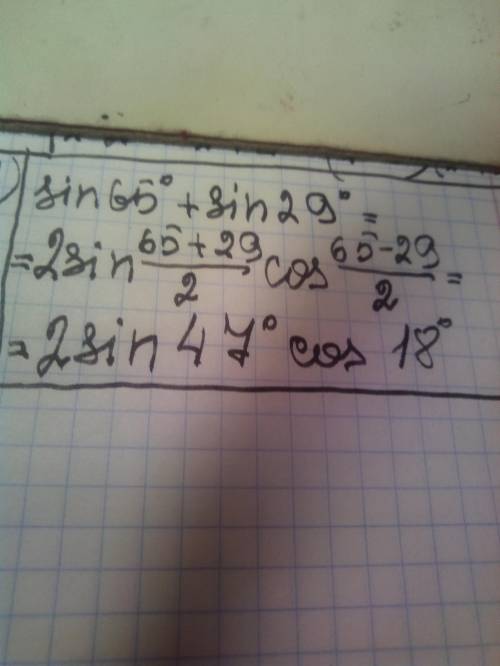 sin65° + sin29° =
= 2sin (65+29)/2 cos (65-29)/2 =
= 2sin 47° cos 18°